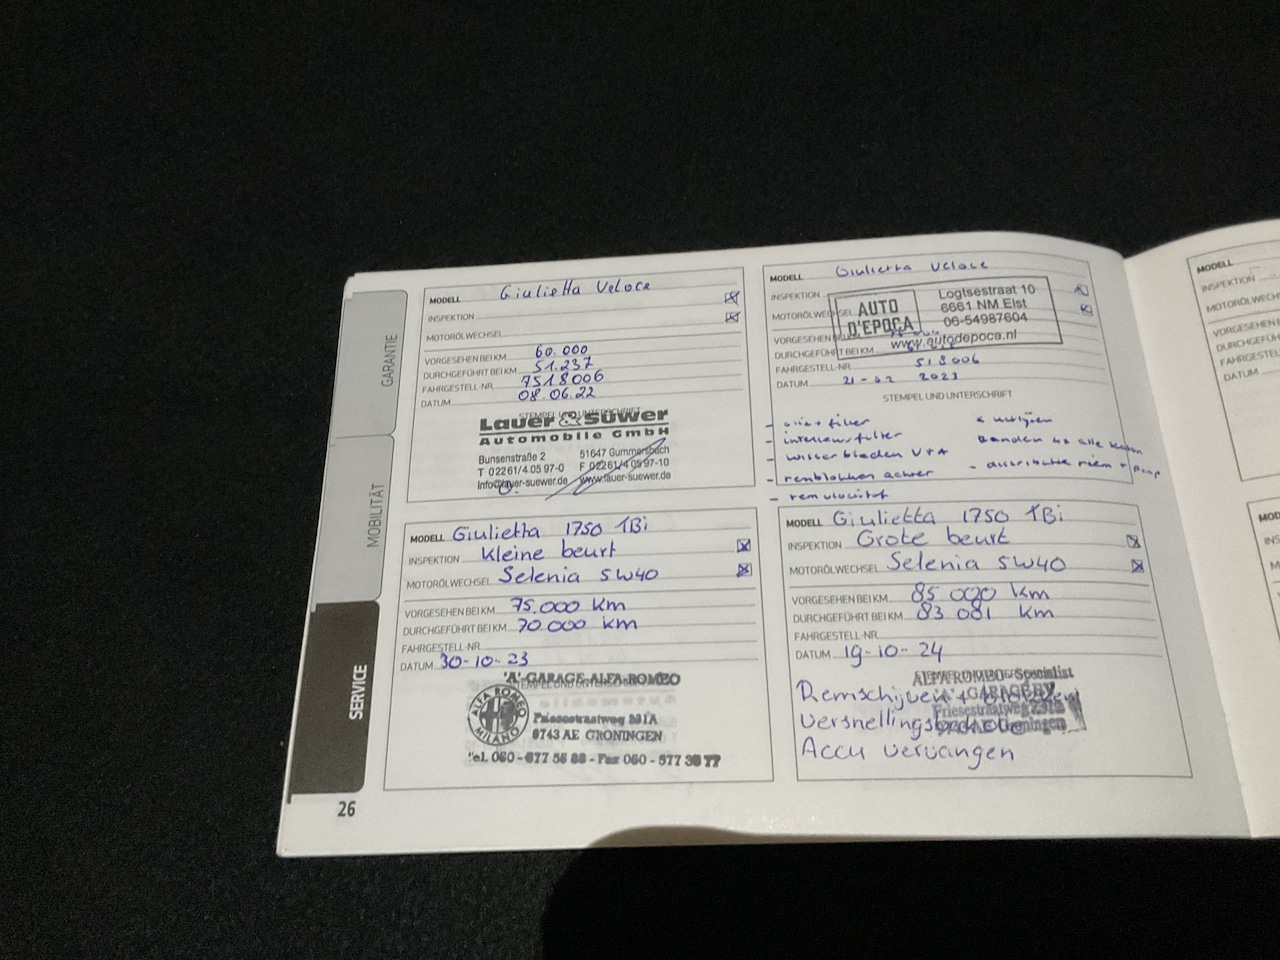 GARANTIE
MOBILITÄT
SERVICE
26
MODELL Giulietta Veloce
INSPEKTION
MOTORÖLWECHSEL
VORGESEHEN BEI KM 60.000
DURCHGEFÜHRT BEI KM 51.237
FAHRGESTELL-NR. 7518006
DATUM 08.06.22
STEMPEL UND UNTERSCHRIFT
Lauer & Süwer
Automobile GmbH
Bunsenstraße 2 51647 Gummersbach
T 02261/4 05 97-0 F 02261/4 05 97-10
info@lauer-suewer.de www.lauer-suewer.de
MODELL Giulietta Veloce
INSPEKTION
MOTORÖLWECHSEL
VORGESEHEN BEI KM
DURCHGEFÜHRT BEI KM
FAHRGESTELL-NR. 518006
DATUM 21-02 2023
AUTO D'EPOCA
Logtsestraat 10
6661 NM Elst
06-54987604
www.autodepoca.nl
STEMPEL UND UNTERSCHRIFT
- olie + filter
- interieurfilter
- wisserbladen V+A
- remblokken achter
- remvloeistof
Banden 4x alle
- distributie riem + pomp
MODELL Giulietta 1750 TBi
INSPEKTION Kleine beurt
MOTORÖLWECHSEL Selenia 5W40
VORGESEHEN BEI KM 75.000 km
DURCHGEFÜHRT BEI KM 70.000 km
FAHRGESTELL-NR.
DATUM 30-10-23
'A'-GARAGE ALFA-ROMEO
ALFA ROMEO MILANO
Friesestraatweg 231A
9743 AE GRONINGEN
Tel. 050 - 577 55 88 - Fax 050 - 577 38 77
MODELL Giulietta 1750 TBi
INSPEKTION Grote beurt
MOTORÖLWECHSEL Selenia 5W40
VORGESEHEN BEI KM 85 000 km
DURCHGEFÜHRT BEI KM 83 081 km
FAHRGESTELL-NR.
DATUM 19-10-24
ALFA ROMEO Specialist
Remschijven +
Accu vervangen
MODELL
INSPEKTION
MOTORÖLWECHSEL
VORGESEHEN
DURCHGEFÜ
FAHRGESTEL
DATUM
MODEL